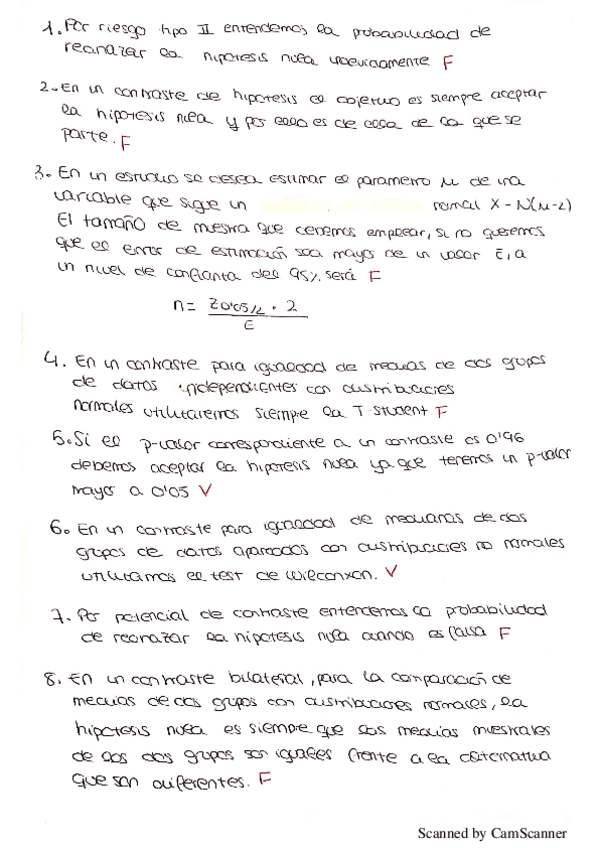 1. Por riesgo tipo II entendemos la probabilidad de
rechazar la hipotesis nula indebidamente F
2. En un contraste de hipotesis el objetivo es siempre aceptar
la hipotesis nula y por ello es de ella de la que se
parte. F
3. En un estudio se desea estimar el parametro μ de una
variable que sigue un normal X - N(μ-2)
El tamaño de muestra que debemos emplear, si no queremos
que el error de estimación sea mayor de un valor E, a
un nivel de confianza del 95% será F
n = Z0'05/2 · 2
E
4. En un contraste para igualdad de medias de dos grupos
de datos independientes con distribuciones
normales utilizaremos siempre la T-student F
5. Si el p-valor correspondiente a un contraste es 0'96
debemos aceptar la hipotesis nula ya que tenemos un p-valor
mayor a 0'05 V
6. En un contraste para igualdad de medianas de dos
grupos de datos apareados con distribuciones no normales
utilizamos el test de Wilconxon. V
7. Por potencial de contraste entendemos la probabilidad
de rechazar la hipotesis nula cuando es falsa F
8. En un contraste bilateral, para la comparación de
medias de dos grupos con distribuciones normales, la
hipotesis nula es siempre que las medias muestrales
de los dos grupos son iguales frente a la alternativa
que son diferentes. F
Scanned by CamScanner